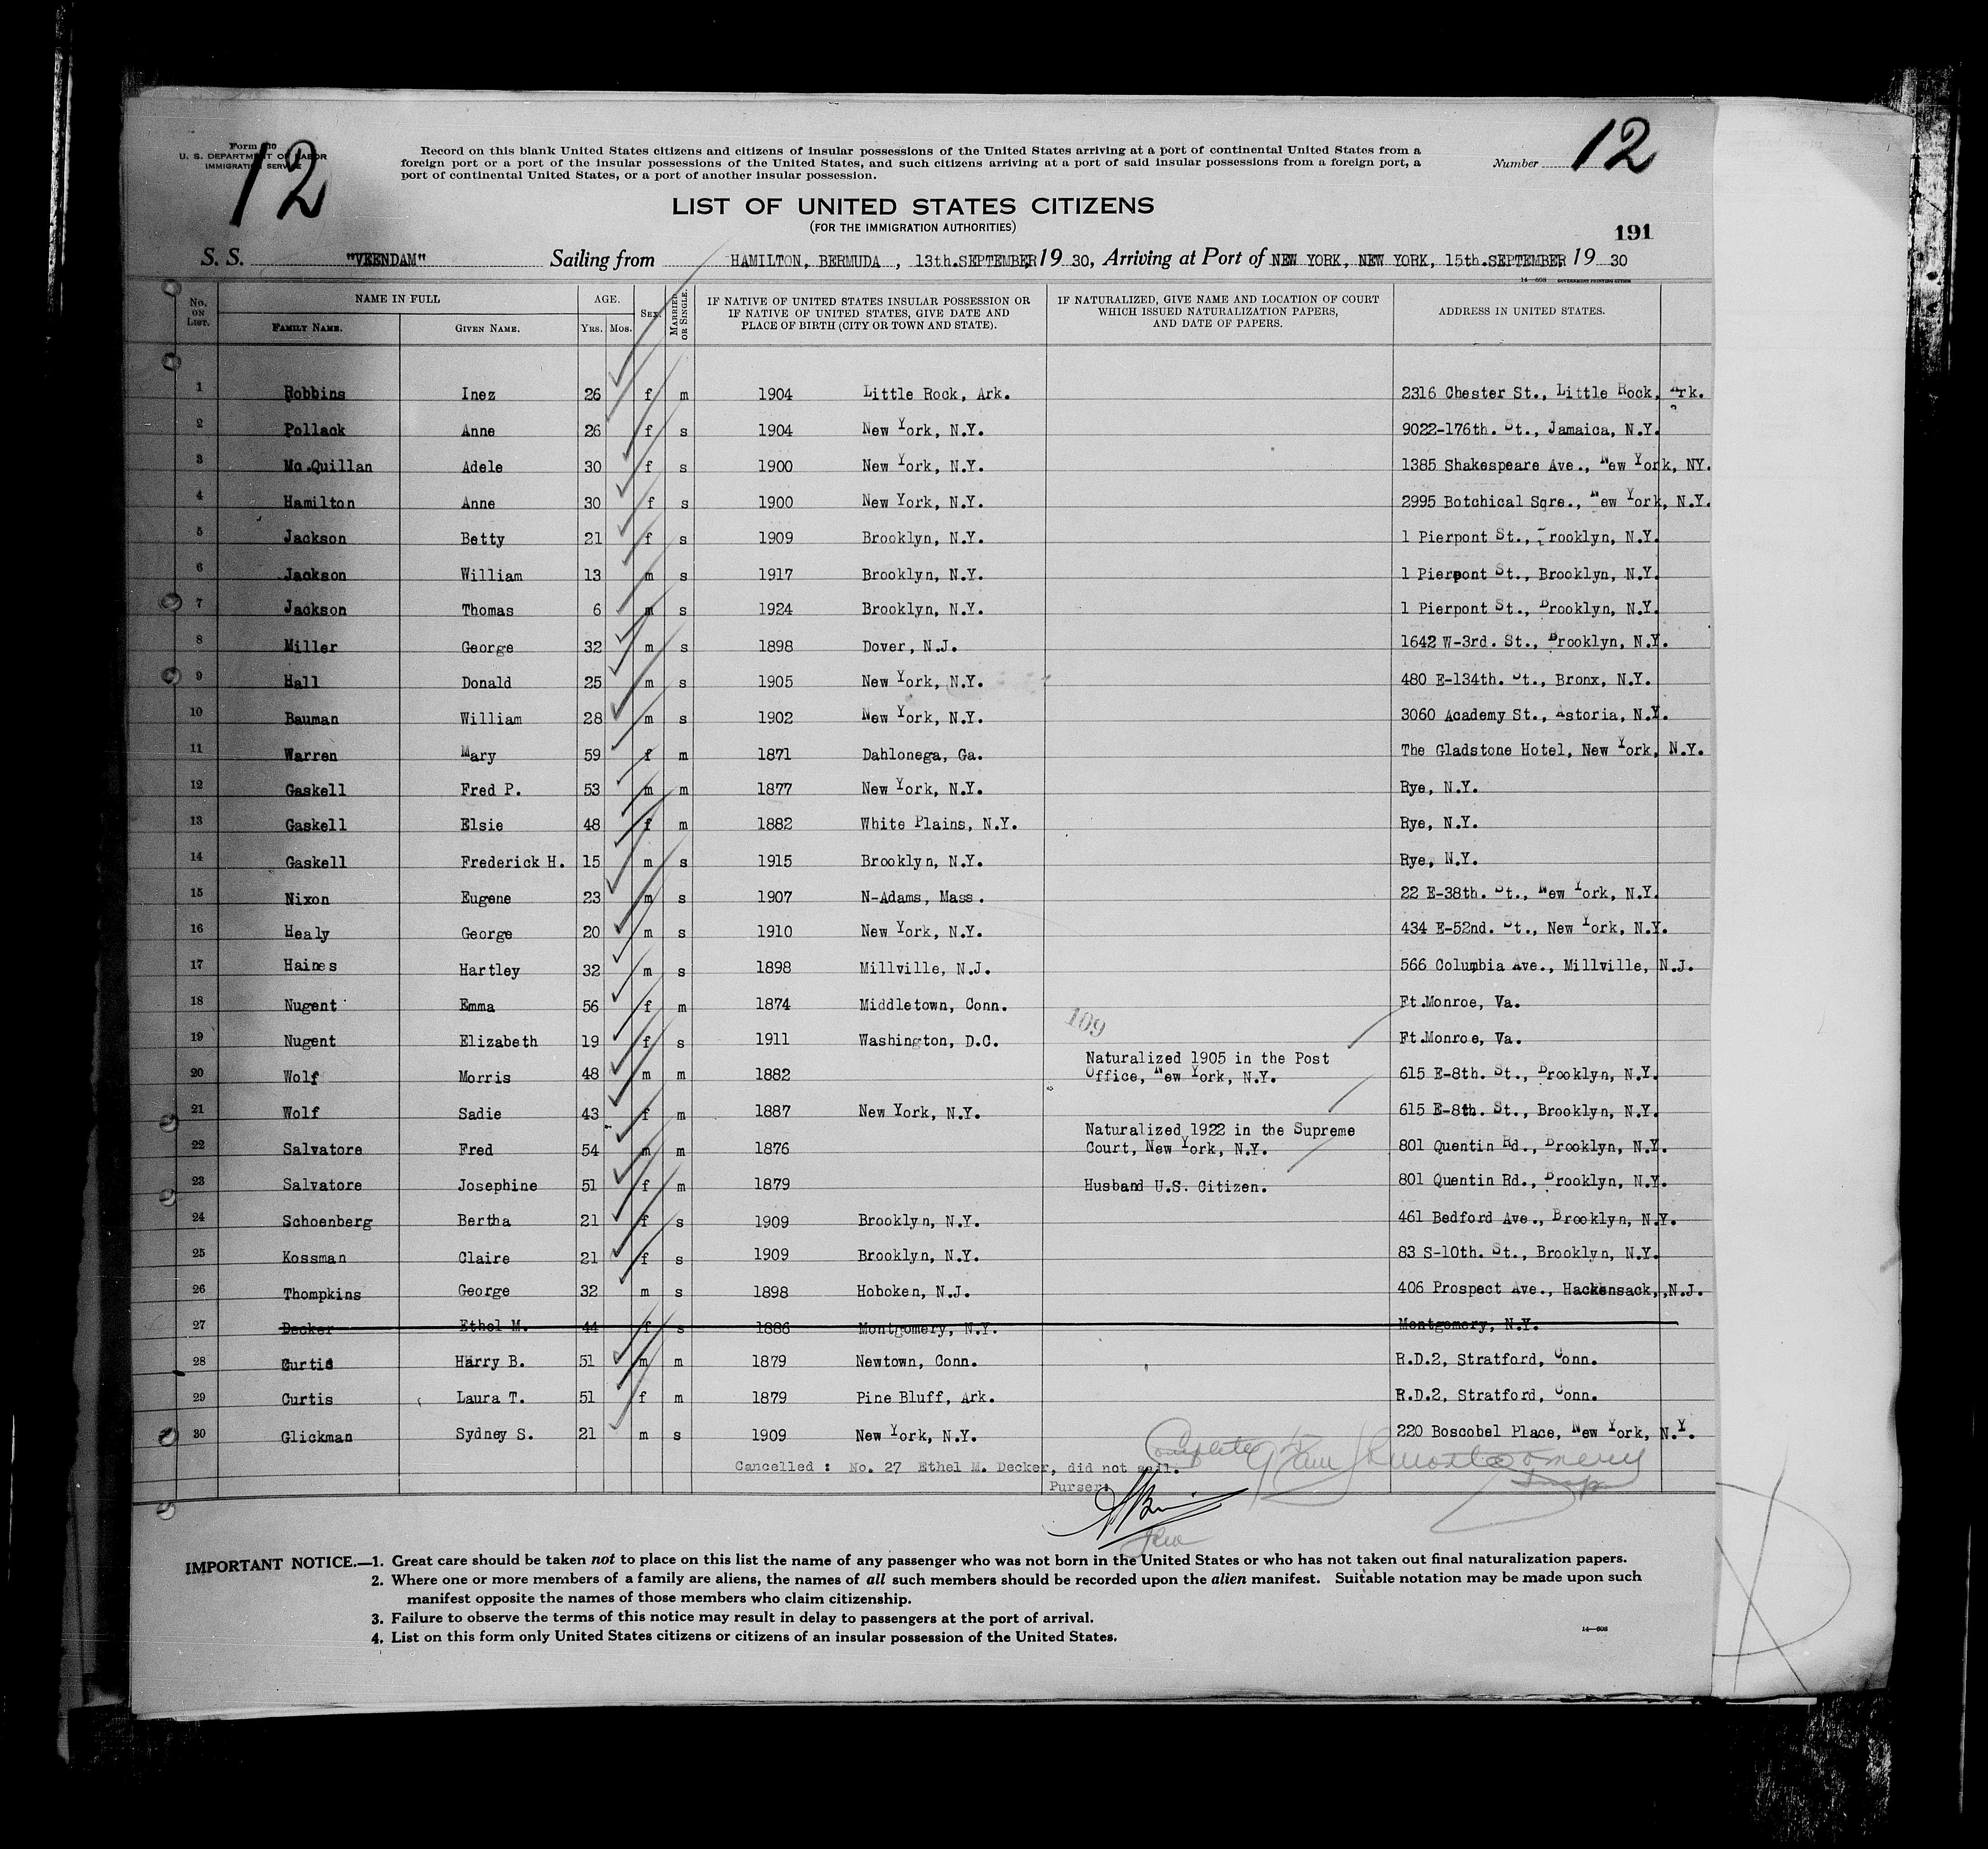 Form 630
U. S. DEPARTMENT OF LABOR
IMMIGRATION SERVICE
12
Record on this blank United States citizens and citizens of insular possessions of the United States arriving at a port of continental United States from a
foreign port or a port of the insular possessions of the United States, and such citizens arriving at a port of said insular possessions from a foreign port, a
port of continental United States, or a port of another insular possession.
Number 12
LIST OF UNITED STATES CITIZENS
(FOR THE IMMIGRATION AUTHORITIES)
191
S. S. "VEENDAM" Sailing from HAMILTON, BERMUDA , 13th.SEPTEMBER, 19 30, Arriving at Port of NEW YORK, NEW YORK, 15th.SEPTEMBER 19 30
14—608 GOVERNMENT PRINTING OFFICE
No. ON LIST. NAME IN FULL AGE. SEX. MARRIED OR SINGLE. IF NATIVE OF UNITED STATES INSULAR POSSESSION OR IF NATIVE OF UNITED STATES, GIVE DATE AND PLACE OF BIRTH (CITY OR TOWN AND STATE). IF NATURALIZED, GIVE NAME AND LOCATION OF COURT WHICH ISSUED NATURALIZATION PAPERS, AND DATE OF PAPERS. ADDRESS IN UNITED STATES.
FAMILY NAME. GIVEN NAME. YRS. MOS.
1 Robbins Inez 26 f m 1904 Little Rock, Ark. 2316 Chester St., Little Rock, Ark.
2 Pollack Anne 26 f s 1904 New York, N.Y. 9022-176th. St., Jamaica, N.Y.
3 Mc.Quillan Adele 30 f s 1900 New York, N.Y. 1385 Shakespeare Ave., New York, NY.
4 Hamilton Anne 30 f s 1900 New York, N.Y. 2995 Botchical Sqre., New York, N.Y.
5 Jackson Betty 21 f s 1909 Brooklyn, N.Y. 1 Pierpont St., Brooklyn, N.Y.
6 Jackson William 13 m s 1917 Brooklyn, N.Y. 1 Pierpont St., Brooklyn, N.Y.
7 Jackson Thomas 6 m s 1924 Brooklyn, N.Y. 1 Pierpont St., Brooklyn, N.Y.
8 Miller George 32 m s 1898 Dover, N.J. 1642 W-3rd. St., Brooklyn, N.Y.
9 Hall Donald 25 m s 1905 New York, N.Y. 480 E-134th. St., Bronx, N.Y.
10 Bauman William 28 m s 1902 New York, N.Y. 3060 Academy St., Astoria, N.Y.
11 Warren Mary 59 f m 1871 Dahlonega, Ga. The Gladstone Hotel, New York, N.Y.
12 Gaskell Fred P. 53 m m 1877 New York, N.Y. Rye, N.Y.
13 Gaskell Elsie 48 f m 1882 White Plains, N.Y. Rye, N.Y.
14 Gaskell Frederick H. 15 m s 1915 Brooklyn, N.Y. Rye, N.Y.
15 Nixon Eugene 23 m s 1907 N-Adams, Mass. 22 E-38th. St., New York, N.Y.
16 Healy George 20 m s 1910 New York, N.Y. 434 E-52nd. St., New York, N.Y.
17 Haines Hartley 32 m s 1898 Millville, N.J. 566 Columbia Ave., Millville, N.J.
18 Nugent Emma 56 f m 1874 Middletown, Conn. Ft.Monroe, Va.
109
19 Nugent Elizabeth 19 f s 1911 Washington, D.C. Ft.Monroe, Va.
20 Wolf Morris 48 m m 1882 Naturalized 1905 in the Post Office, New York, N.Y. 615 E-8th. St., Brooklyn, N.Y.
21 Wolf Sadie 43 f m 1887 New York, N.Y. 615 E-8th. St., Brooklyn, N.Y.
22 Salvatore Fred 54 m m 1876 Naturalized 1922 in the Supreme Court, New York, N.Y. 801 Quentin Rd., Brooklyn, N.Y.
23 Salvatore Josephine 51 f m 1879 Husband U.S. Citizen. 801 Quentin Rd., Brooklyn, N.Y.
24 Schoenberg Bertha 21 f s 1909 Brooklyn, N.Y. 461 Bedford Ave., Brooklyn, N.Y.
25 Kossman Claire 21 f s 1909 Brooklyn, N.Y. 83 S-10th. St., Brooklyn, N.Y.
26 Thompkins George 32 m s 1898 Hoboken, N.J. 406 Prospect Ave., Hackensack, N.J.
27 Decker Ethel M. 44 f s 1886 Montgomery, N.Y. Montgomery, N.Y.
28 Curtis Harry B. 51 m m 1879 Newtown, Conn. R.D.2, Stratford, Conn.
29 Curtis Laura T. 51 f m 1879 Pine Bluff, Ark. R.D.2, Stratford, Conn.
30 Glickman Sydney S. 21 m s 1909 New York, N.Y. 220 Boscobel Place, New York, N.Y.
Complete
Montgomery
Cancelled : No. 27 Ethel M. Decker, did not sail.
Purser:
IMPORTANT NOTICE.—1. Great care should be taken not to place on this list the name of any passenger who was not born in the United States or who has not taken out final naturalization papers.
2. Where one or more members of a family are aliens, the names of all such members should be recorded upon the alien manifest. Suitable notation may be made upon such
manifest opposite the names of those members who claim citizenship.
3. Failure to observe the terms of this notice may result in delay to passengers at the port of arrival.
4. List on this form only United States citizens or citizens of an insular possession of the United States.
14—608